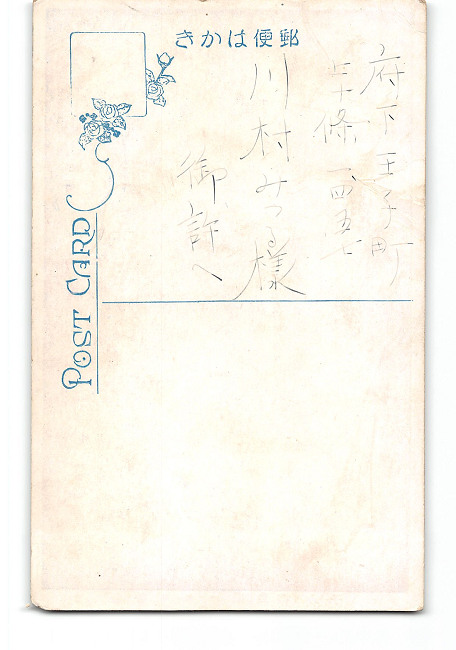 きかは便郵
府下王子町
十條一四五七
川村みつる様
御許へ
POST CARD